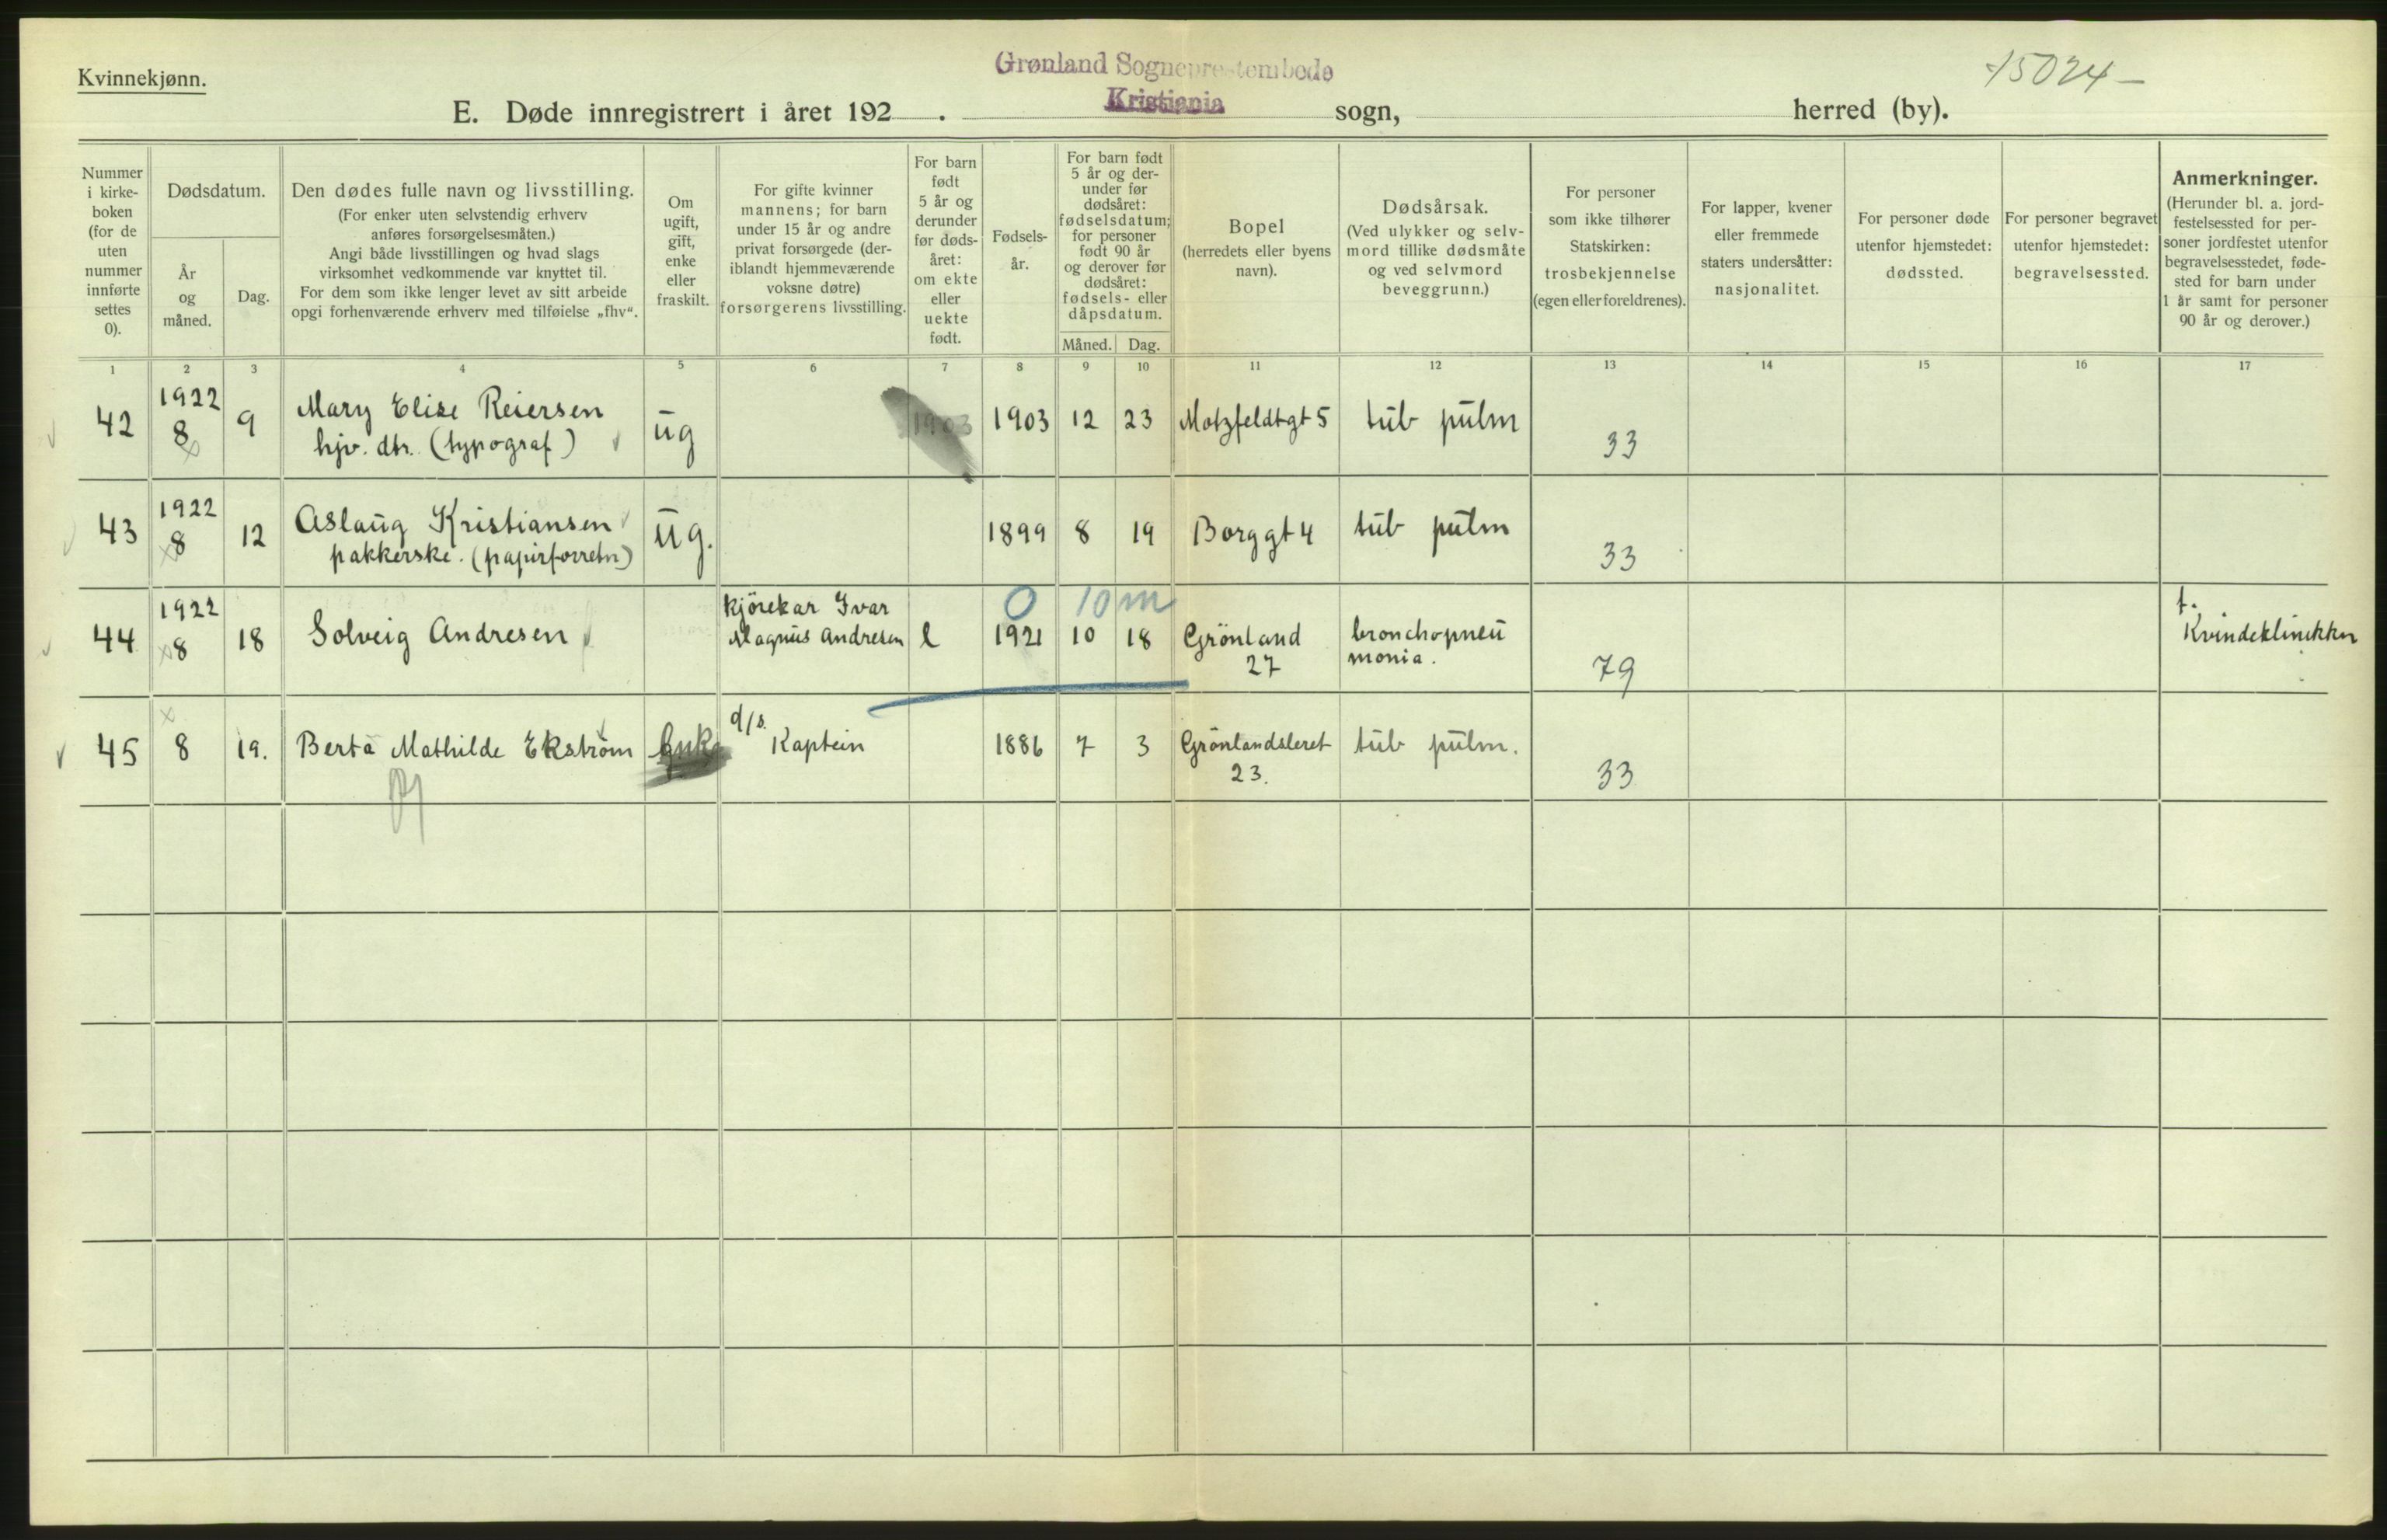 Kvinnekjønn.
Grønland Sogneprestembede
Kristiania
15024-
E. Døde innregistrert i året 192 . sogn, herred (by).
Nummer
i kirke-
boken
(for de
uten
nummer
innførte
settes
0).
Dødsdatum.
År
og
måned.
Dag.
Den dødes fulle navn og livsstilling.
(For enker uten selvstendig erhverv
anføres forsørgelsesmåten.)
Angi både livsstillingen og hvad slags
virksomhet vedkommende var knyttet til.
For dem som ikke lenger levet av sitt arbeide
opgi forhenværende erhverv med tilføielse „fhv“.
Om
ugift,
gift,
enke
eller
fraskilt.
For gifte kvinner
mannens; for barn
under 15 år og andre
privat forsørgede (der-
iblandt hjemmeværende
voksne døtre)
forsørgerens livsstilling.
For barn
født
5 år og
derunder
før døds-
året:
om ekte
eller
uekte
født.
Fødsels-
år.
For barn født
5 år og der-
under før
dødsåret:
fødselsdatum;
for personer
født 90 år
og derover før
dødsåret:
fødsels- eller
dåpsdatum.
Måned. Dag.
Bopel
(herredets eller byens
navn).
Dødsårsak.
(Ved ulykker og selv-
mord tillike dødsmåte
og ved selvmord
beveggrunn.)
For personer
som ikke tilhører
Statskirken:
trosbekjennelse
(egen eller foreldrenes).
For lapper, kvener
eller fremmede
staters undersåtter:
nasjonalitet.
For personer døde
utenfor hjemstedet:
dødssted.
For personer begravet
utenfor hjemstedet:
begravelsessted.
Anmerkninger.
(Herunder bl. a. jord-
festelsessted for per-
soner jordfestet utenfor
begravelsesstedet, føde-
sted for barn under
1 år samt for personer
90 år og derover.)
1 2 3 4 5 6 7 8 9 10 11 12 13 14 15 16 17
42 1922 8 9 Mary Elise Reiersen
hjv. dtr. (typograf) ug 1903 1903 12 23 Motzfeldtgt 5 tub pulm 33
43 1922 8 12 Aslaug Kristiansen
pakkerske. (papirforretn) ug. 1899 8 19 Borggt 4 tub pulm 33
0 10 m
44 1922 8 18 Solveig Andresen kjörekar Ivar
Magnus Andresen e 1921 10 18 Grönland
27 bronchopneu
monia. 79 f.
Kvindeklinikken
45 8 19. Berta Mathilde Ekström d/s.
Kaptein 1886 7 3 Grönlandsleret
23. tub pulm. 33